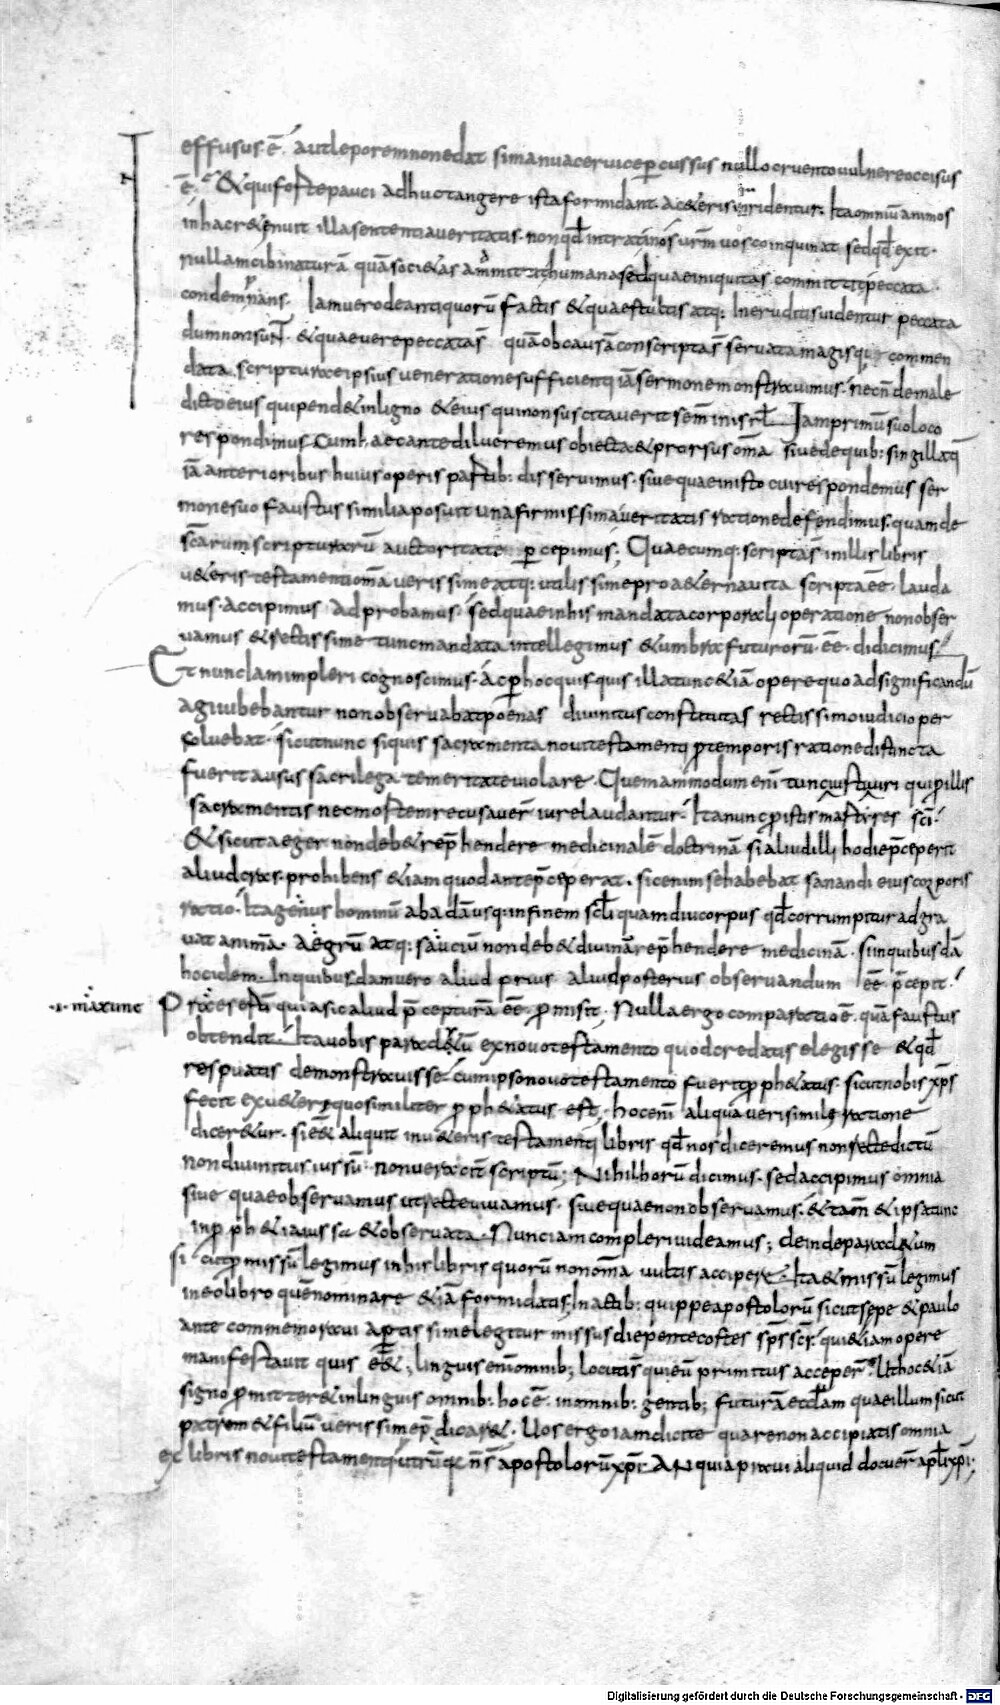 effusus. ē. aut leporem non edat si manu a cervice percussus nullo cruento vulnere occisus
ē. & qui forte pauci adhuc tangere ista formidant. a c&eris inridentur. Ita omniū animos
in hac re tenuit illa sententia veritatis. non qđ intrat in os vr̄m vos coinquinat sed qđ exit.
nullam cibi naturā quā soci&as ammittit humana sed quae iniquitas committit peccata
condemnans. Iam vero de antiquorū factis & quae stultis atq: ineruditis videntur peccata
dum non sunt. & quae vere peccata s̄ quā ob causā conscripta s̄ servata magisq; commen
data scripturae ipsius veneratione sufficienti iā sermone monstravimus. necn̄ de male
dicto eius qui pend& in ligno & eius qui non suscitaverit sem̄ in isrl̄. Iam primū suo loco
respondimus. Cum haec ante dilueremus obiecta & prorsus om̄a sive de quib: singillatī
iā anterioribus huius operis partib: disseruimus. sive quae in isto cui respondemus ser
mone suo faustus similia posuit una firmissima veritatis ratione defendimus. quam de
sc̄arum scripturarū auctoritate percepimus; Quaecumq: scripta s̄ in illis libris
v&eris testamenti om̄a verissime atq: utilissime pro a&erna vita scripta ēē. lauda
mus. accipimus. adprobamus. sed quae in his mandata corporali operatione non obser
vamus & rectissime tunc mandata intellegimus & umbra futurorū. ēē. didicimus.
Et nunc iam impleri cognoscimus. Ac per hoc quisquis illa tunc &iā opere quo ad significandū
agi iubebantur non observabat poenas divinitus constitutas rectissimo iudicio per
solvebat. sicut nunc siquis sacramenta novi testamenti pro temporis ratione distincta
fuerit ausus sacrilega temeritate violare. Quemammodum enī tunc iusti viri qui pro illis
sacramentis nec mortem recusaver̄ iure laudantur. Ita nunc pro istis martyres sc̄i.
& sicut aeger non deb& reprehendere medicinalē doctrinā si aliud illi hodie praeceperit
aliud cras. prohibens &iam quod ante praeceperat. sic enim se habebat sanandi eius corporis
ratio. Ita genus hominū ab adā usq: in finem scl̄i quamdiu corpus qđ corrumpitur adgra
vat animā. aegrū atq: sauciū non deb& divinā reprehendere medicinā. si in quibusdā
hoc idem. In quibusdam vero aliud prius aliud posterius observandum ēē praecepit.
.i. maxime Praeserti qui asic aliud praecepturā ēē promisit. Nulla ergo comparatio ē. quā faustus
obtendit. Ita vobis paracl&ū ex novo testamento quod credatis elegisse & qđ
respuatis demonstravisse. cum ipso novo testamento fuerit proph&atus. sicut nobis xp̄s
fecit ex v&eri quo similiter proph&atus est; hoc enī aliqua verisimili ratione
dicer&ur. si ēē aliquit in v&eris testamenti libris qđ nos diceremus non recte dictū
non divinitus iussū. non veraciter scriptū; Nihil horū dicimus. sed accipimus omnia
sive quae observamus ut recte vivamus. sive quae non observamus. & tam̄ & ipsa tunc
in proph&ia iussa & observata. Nunc iam compleri videamus; deinde paracl&um
sicut promissū legimus in his libris quorū non om̄a vultis accipere. Ita & missū legimus
in eo libro quē nominare &iā formidatis. In actib: quippe apostolorū sicut sepe & paulo
ante commemoravi apertissime legitur missus die pentecostes sp̄s sc̄s. qui &iam opere
manifestavit quis ēēt; linguis enī omnib; locuti s̄ qui eū primitus acceper̄. Ut hoc &iā
signo promitter& in linguis omnib: hoc ē. in omnib: gentib; futurā aeccl̄am quae illum sicut
patrem & filiū verissime praedicar&. Vos ergo iam dicite quare non accipiatis omnia
ex libris novi testamenti utrū qc n̄ s̄ apostolorū xp̄i. AN quia prava aliquid docuer̄ apl̄i xp̄i.
Digitalisierung gefördert durch die Deutsche Forschungsgemeinschaft - DFG